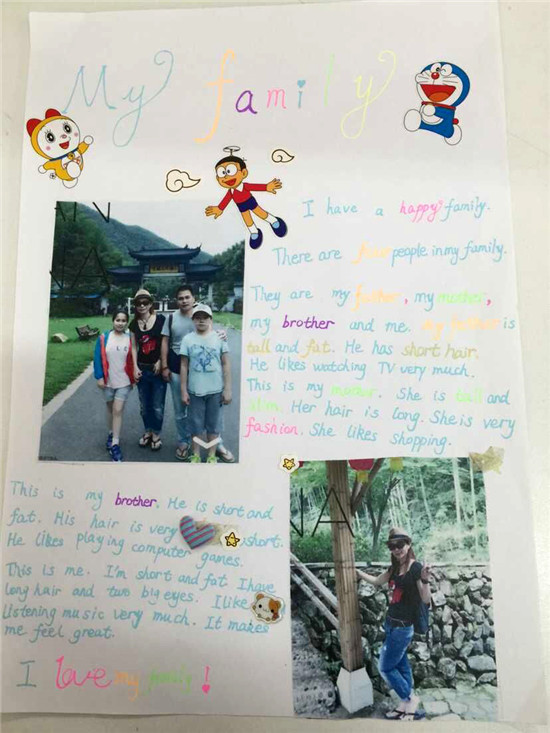 My family
I have a happy family.
There are four people in my family.
They are my father, my mother,
my brother and me. My father is
tall and fat. He has short hair.
He likes watching TV very much.
This is my mother. She is tall and
slim. Her hair is long. She is very
fashion. She likes shopping.
This is my brother. He is short and
fat. His hair is very short.
He likes playing computer games.
This is me. I'm short and fat. I have
long hair and two big eyes. I like
listening music very much. It makes
me feel great.
I love my family!